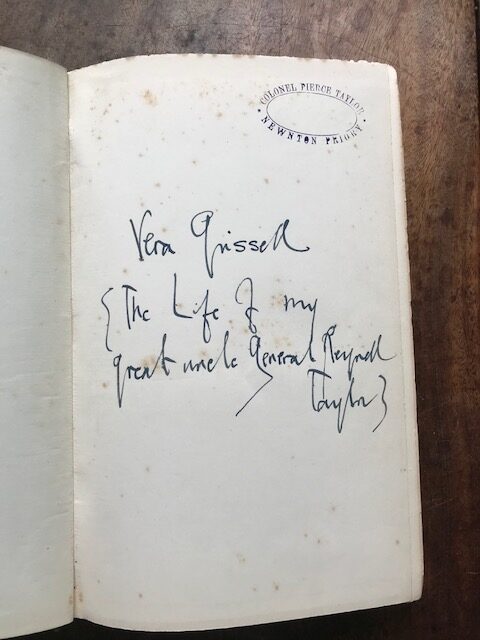 COLONEL PIERCE TAYLOR
• NEWNTON PRIORY •
Vera Grissell
{The Life of my
great uncle General Reynell
Taylor}